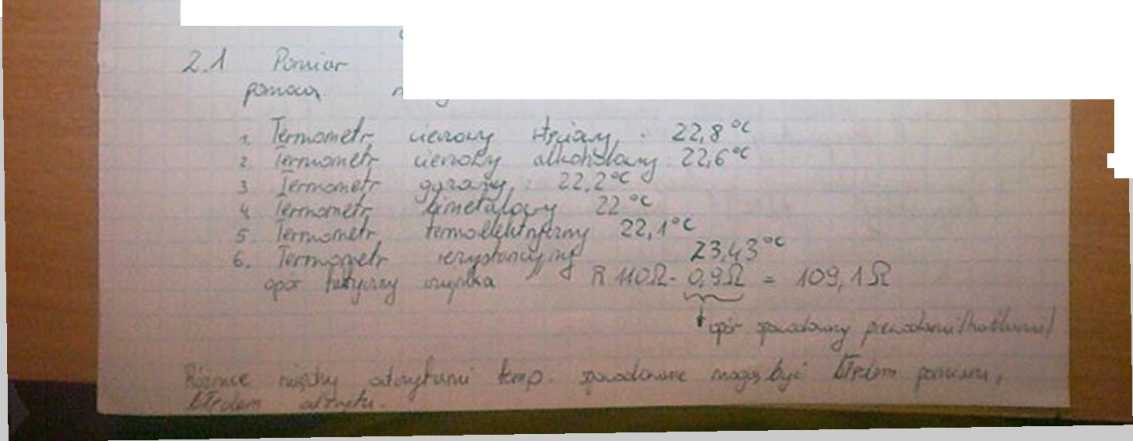 2.1 Pomiar
pomocą
1. Termometr cieczowy rtęciowy : 22,8 °C
2. Termometr cieczowy alkoholowy 22,6 °C
3 Termometr : 22,2 °C
4 Termometr bimetalowy 22 °C
5. Termometr termoelektryczny 22,1 °C
6. Termometr rezystancyjny 23,43 °C
opór czujnika R 110Ω - 0,9Ω = 109,1 Ω
opór spowodowany przewodami
Różnice między odczytami temp. spowodowane mogą być błędem pomiaru,
błędem odczytu.